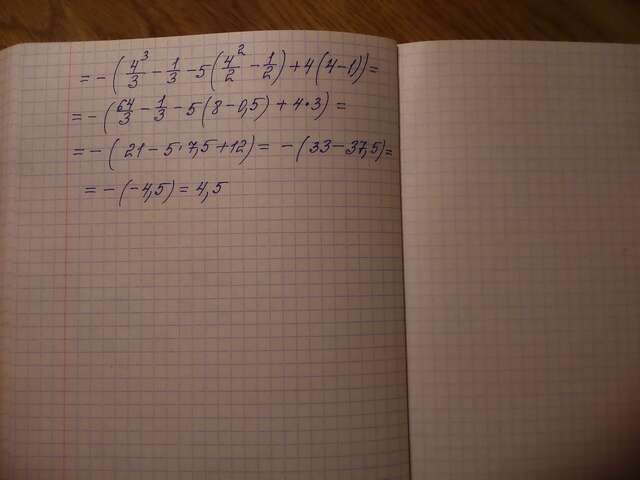 = -(4³/3 - 1/3 - 5(4²/2 - 1/2) + 4(4-1)) =
= -(64/3 - 1/3 - 5(8-0,5) + 4·3) =
= -(21 - 5·7,5+12) = -(33-37,5) =
= -(-4,5) = 4,5